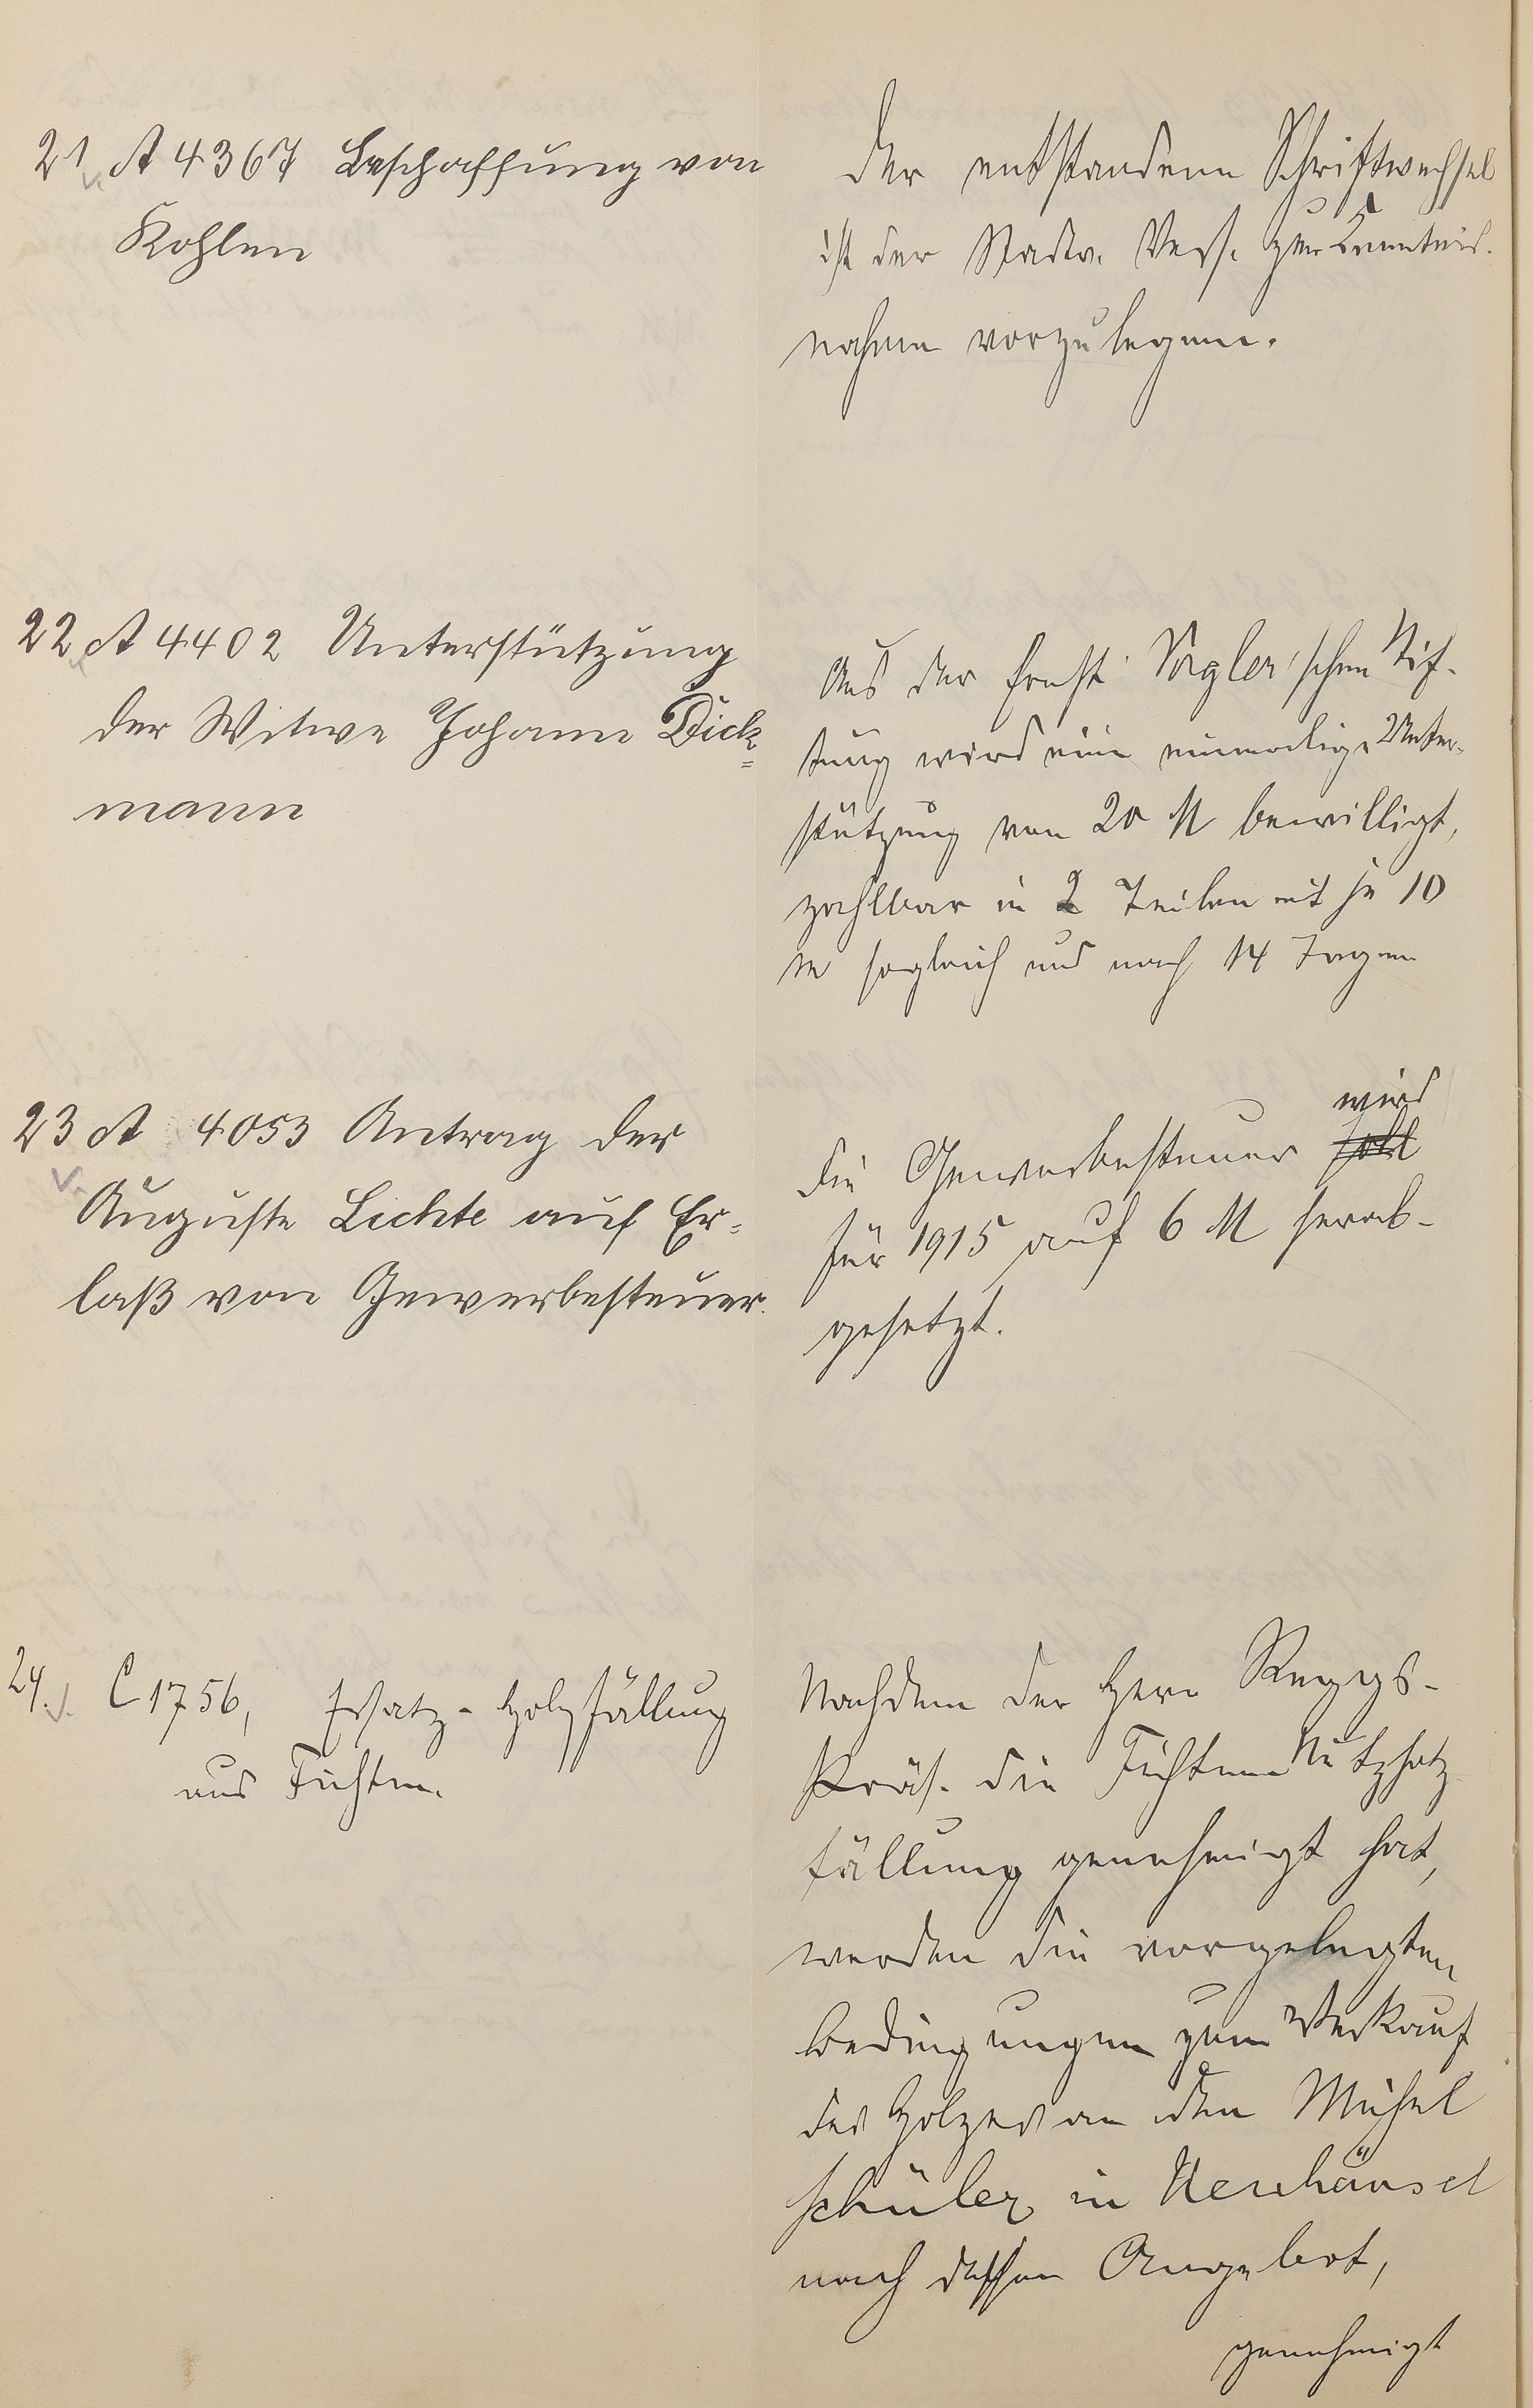 21 A 4367 Beschaffung von
Kohlen
Der entstandene Schriftwechsel
ist der Stadtv. Vers. zur Kenntnis-
nahme vorzulegen.
22 A 4402 Unterstützung
der Witwe Johann Dick=
mann
Aus der Ernst Vogler'schen Stif-
tung wird eine einmalige Unter-
stützung von 20 M bewilligt,
zahlbar in 2 Teilen mit je 10
M sogleich und nach 14 Tagen
23 A 4053 Antrag der
Auguste Lichte auf Er=
laß von Gewerbesteuer.
wird
Die Gewerbesteuer soll
für 1915 auf 6 M herab-
gesetzt.
24. C 1756, Ersatz-Holzfällung
aus Fichten.
Nachdem der Herr Reggs-
Präs. die Fichten Nutzholz
fällung genehmigt hat,
werden die vorgelegten
Bedingungen zum Verkauf
des Holzes an den Michel
Schüler in Neuhäusel
nach dessen Angebot,
genehmigt